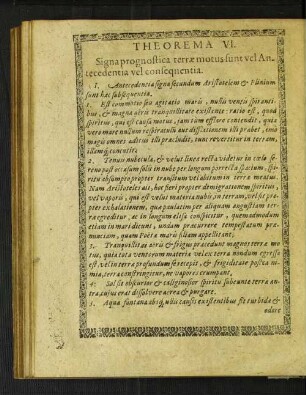 THEOREMA VI.
Signa prognostica terræ motus sunt vel An-
tecedentia vel consequentia.
1. Antecedentia signa secundum Aristotelem & Plinium
sunt hæc subsequentia.
1. Est commotio seu agitatio maris, nullis ventis spiranti-
bus, & magna aëris tranquillitate existente: ratio est, quod
spiritus, qui est causa motus, iam tùm efforre contendit, quia
verò mare nullum
magi omnes aditus illi præcludit, tunc revertitur in terram,
2. Tenuis nubecula, & velut linea recta videtur in cœlo se-
reno post occasum solis in nube per longum porrecta spatium, spi-
ritu absumpto propter transitum validiorem in terræ motus.
Nam Aristoteles ait, hoc fieri propter demigrationem spiritus,
vel vaporis, qui est velut materia nubis, in terram, vel est pro-
pter exhalationem, quæ paulatim per aliquam angustiam ter-
ræ egreditur, ac in longum elisa conspicitur, quemadmodum
etiam in mari dicunt, undam præcurrere tempestatum præ-
nunciam, quam Poëtæ maris illam appellitant.
3. Tranquillitas aëris & frigus præcedunt magnos terræ mo-
tus, quia tota ventorum materia vel ex terra nondum egressa
est, vel in terræ profundum se recepit, & frigiditate postea ni-
mia, terra constringitur, ne vapores erumpant,
4. Sol sit obscurior & caliginosior spiritu subeunte terram
5. Aqua fontana absq; ullis causis existentibus fit turbida &
odore